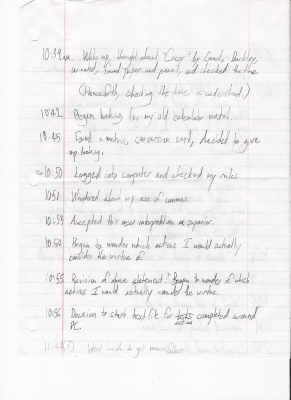 10:39am Woke up, thought about "Crver" by
urinated, found paper and pencil, and checked the time.
(Henceforth, checking the time is understood.)
10:42 Began looking for my old calculator watch.
10:45 Found a metric conversion card, decided to give
up looking.
~10:50 Logged into computer and checked my rules
10:51 Wondered about my use of commas.
10:53 Accepted this new interpretation as superior.
10:53 Began to wonder which actions I would actually
consider the virtue of.
10:55 Revision of above statement: "Began to wonder of which
actions I would actually consider the virtue.
10:56 Decision to start text file for tasks completed around
PC.
11:44(?) Went inside to get